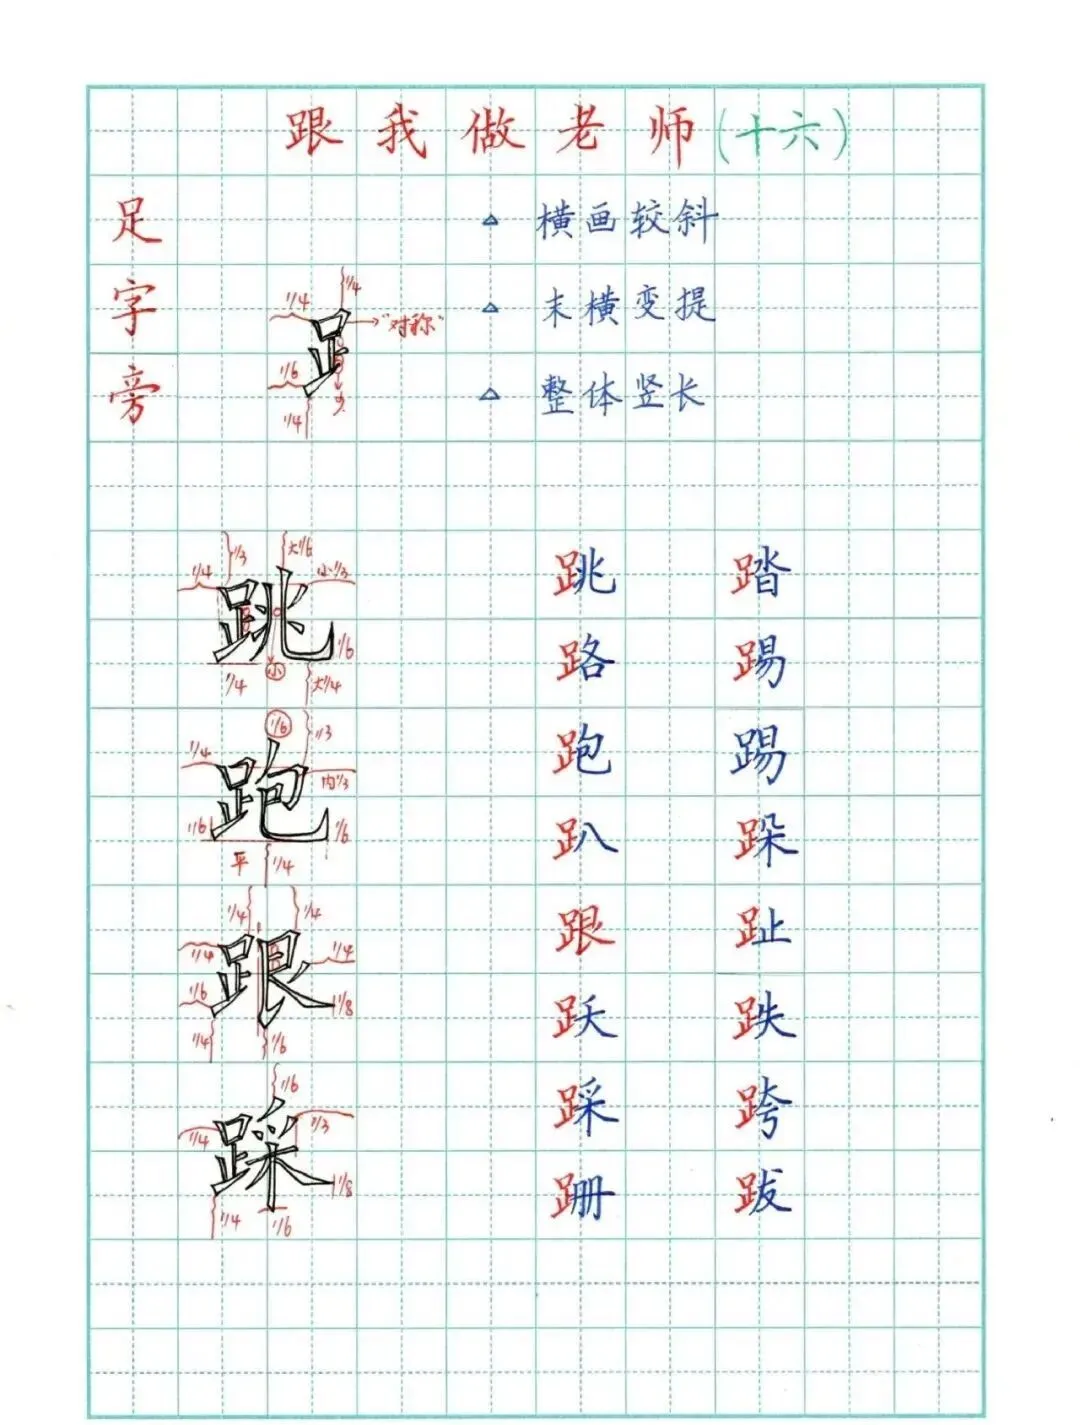 跟我做老师(十六)
足字旁
△ 横画较斜
△ 末横变提
△ 整体竖长
1/4 1/4
"对称"
1/6
1/4
1/3 大1/6
1/4 小1/3
跳
1/6
小
1/4 大1/4
跳 踏
路 踢
1/6 1/3
1/4
内1/3
跑
1/6 1/6
平 1/4
跑 踢
趴 跺
1/4 1/4
1/4 1/4
跟
1/6 1/8
1/4 1/6
跟 趾
跃 跌
1/6
1/4 1/3
踩
1/8
1/4 1/6
踩 跨
跚 跋